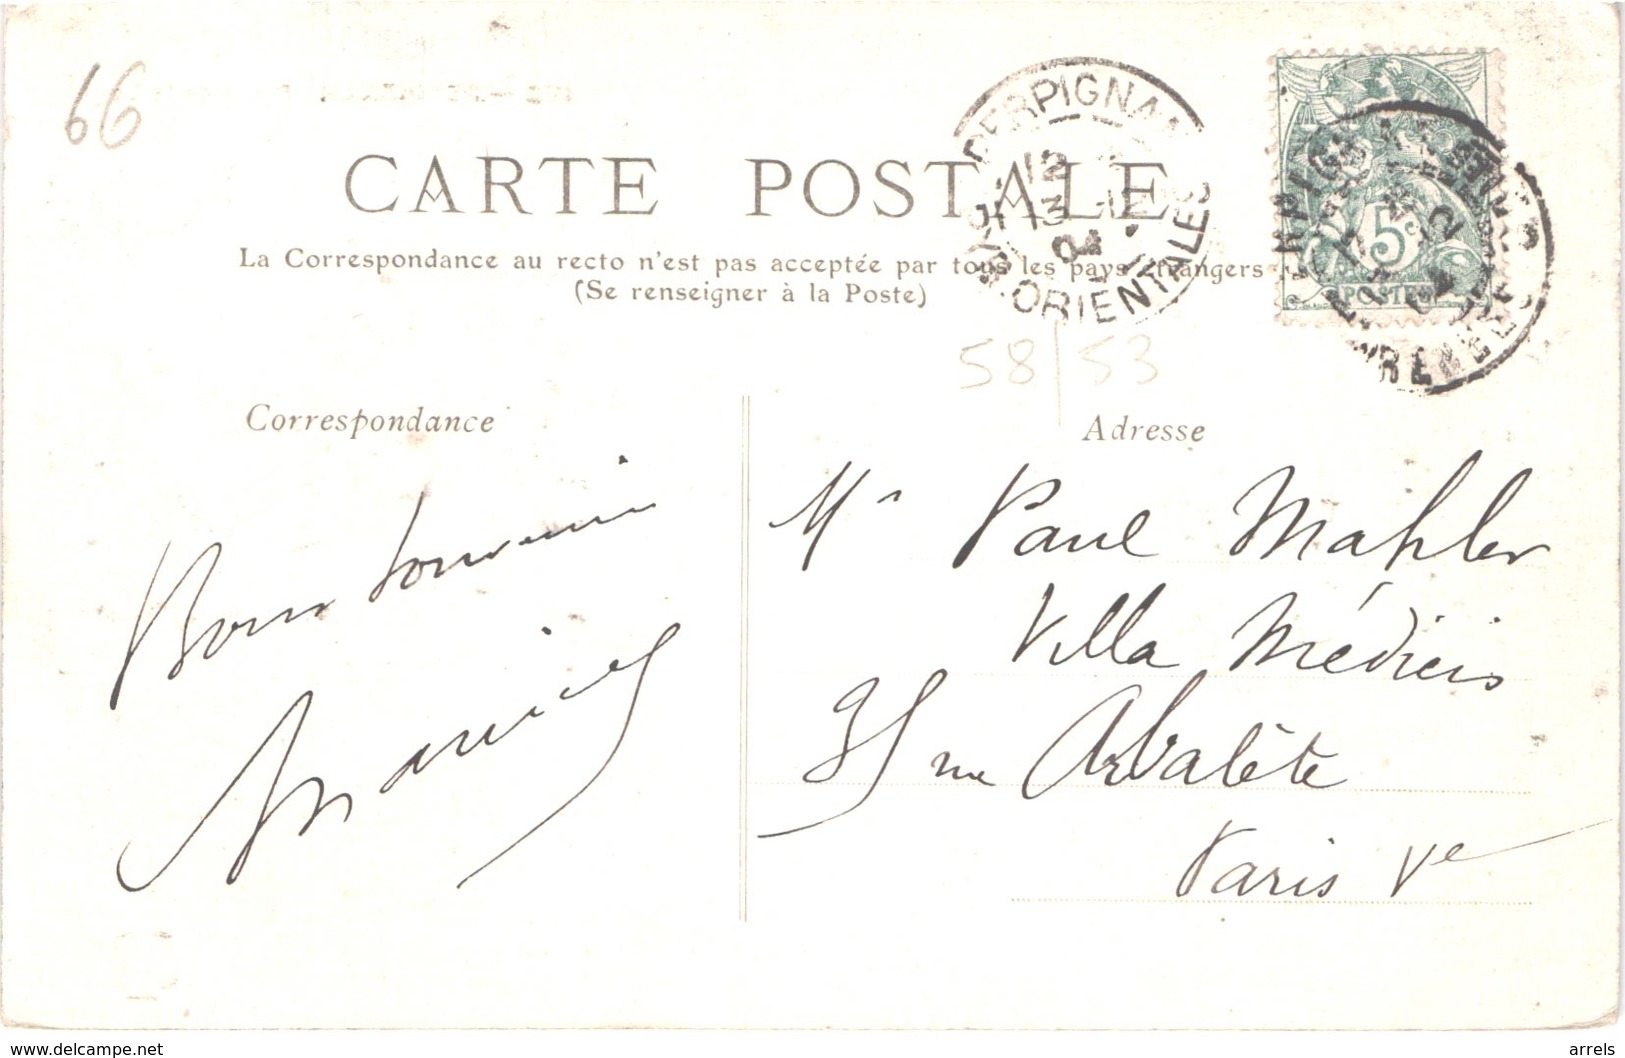 66
CARTE POSTALE
La Correspondance au recto n'est pas acceptée par tous les pays étrangers
(Se renseigner à la Poste)
PERPIGNAN
12
13
04
ORIENTALES
5c
POSTES
58/53
Correspondance
Adresse
Bon souvenir
Mr Paul Mahler
Villa Médicis
35 rue Arbalète
Paris Ve
www.delcampe.net
arrels